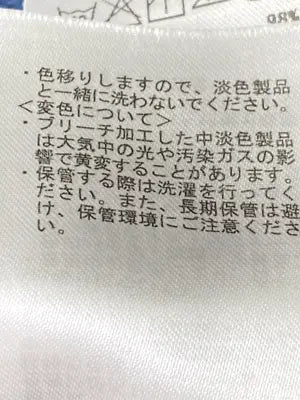 ・色移りしますので、淡色製品
と一緒に洗わないでください。
＜変色について＞
・ブリーチ加工した中淡色製品
は大気中の光や汚染ガスの影
響で黄変することがあります。
・保管する際は洗濯を行ってく
ださい。また、長期保管は避
け、保管環境にご注意くださ
い。